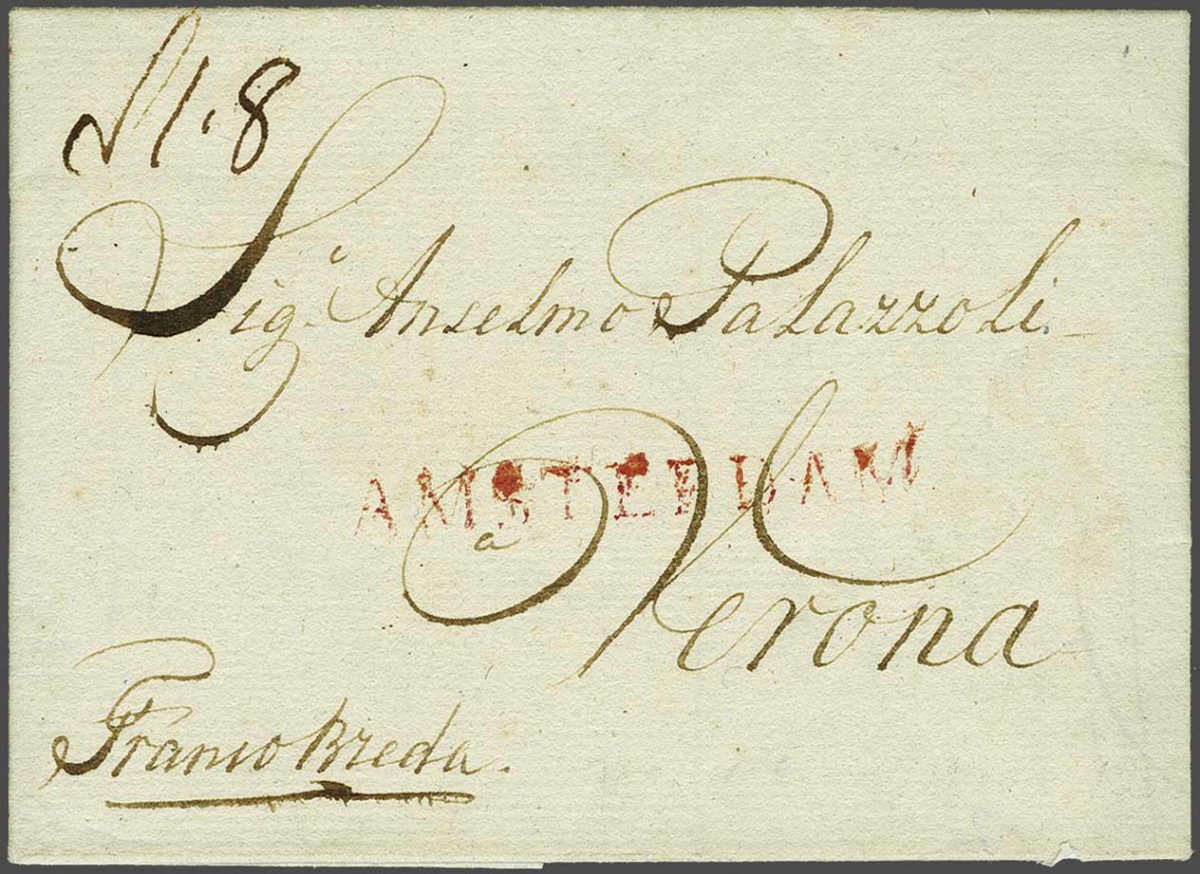 Sig.r Anselmo Palazzoli.
AMSTERDAM
a
Verona
Franco Breda.